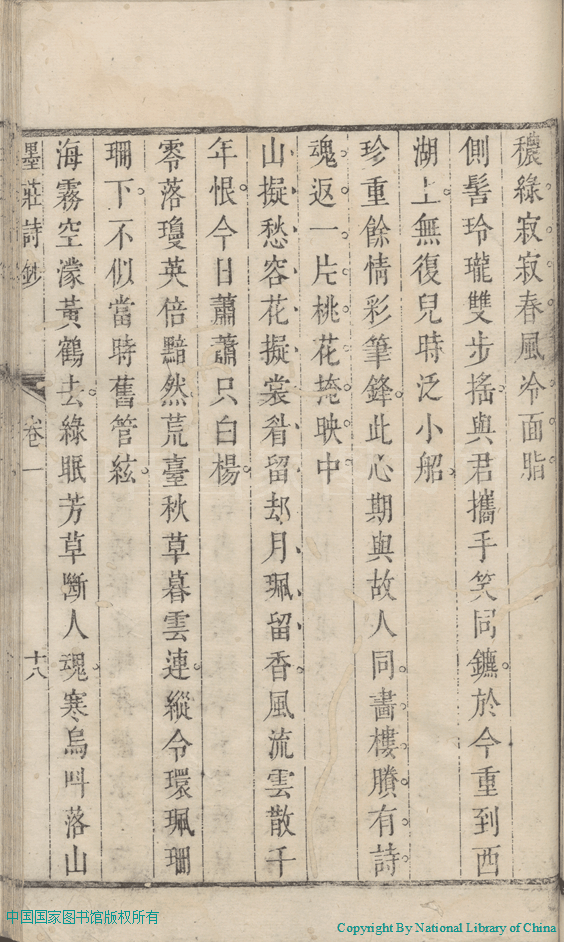 穠綠寂寂春風冷面脂
側髻玲瓏雙步搖與君攜手笑同鑣於今重到西
湖上無復兒時泛小船
珍重餘情彩筆鋒此心期與故人同畵樓賸有詩
魂返一片桃花掩映中
山擬愁容花擬裳眢留却月珮留香風流雲散千
年恨今日蕭蕭只白楊
零落瓊英倍黯然荒臺秋草暮雲連縱令環珮珊
珊下不似當時舊管絃
海霧空濛黃鶴去綠眠芳草斷人魂寒烏叫落山
墨莊詩鈔
卷一
十八
中国国家图书馆版权所有
Copyright By National Library of China